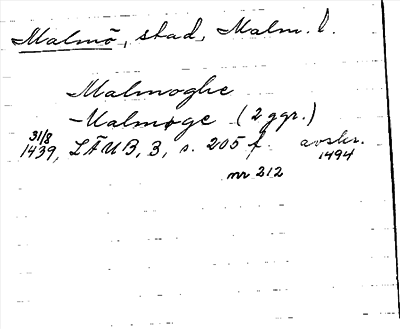 Malmö, stad, Malm. l.
Malmoghe
-Malmøge (2 ggr.)
31/8
1439, LÄUB, 3, s. 205 f. avskr.
1494
nr 212